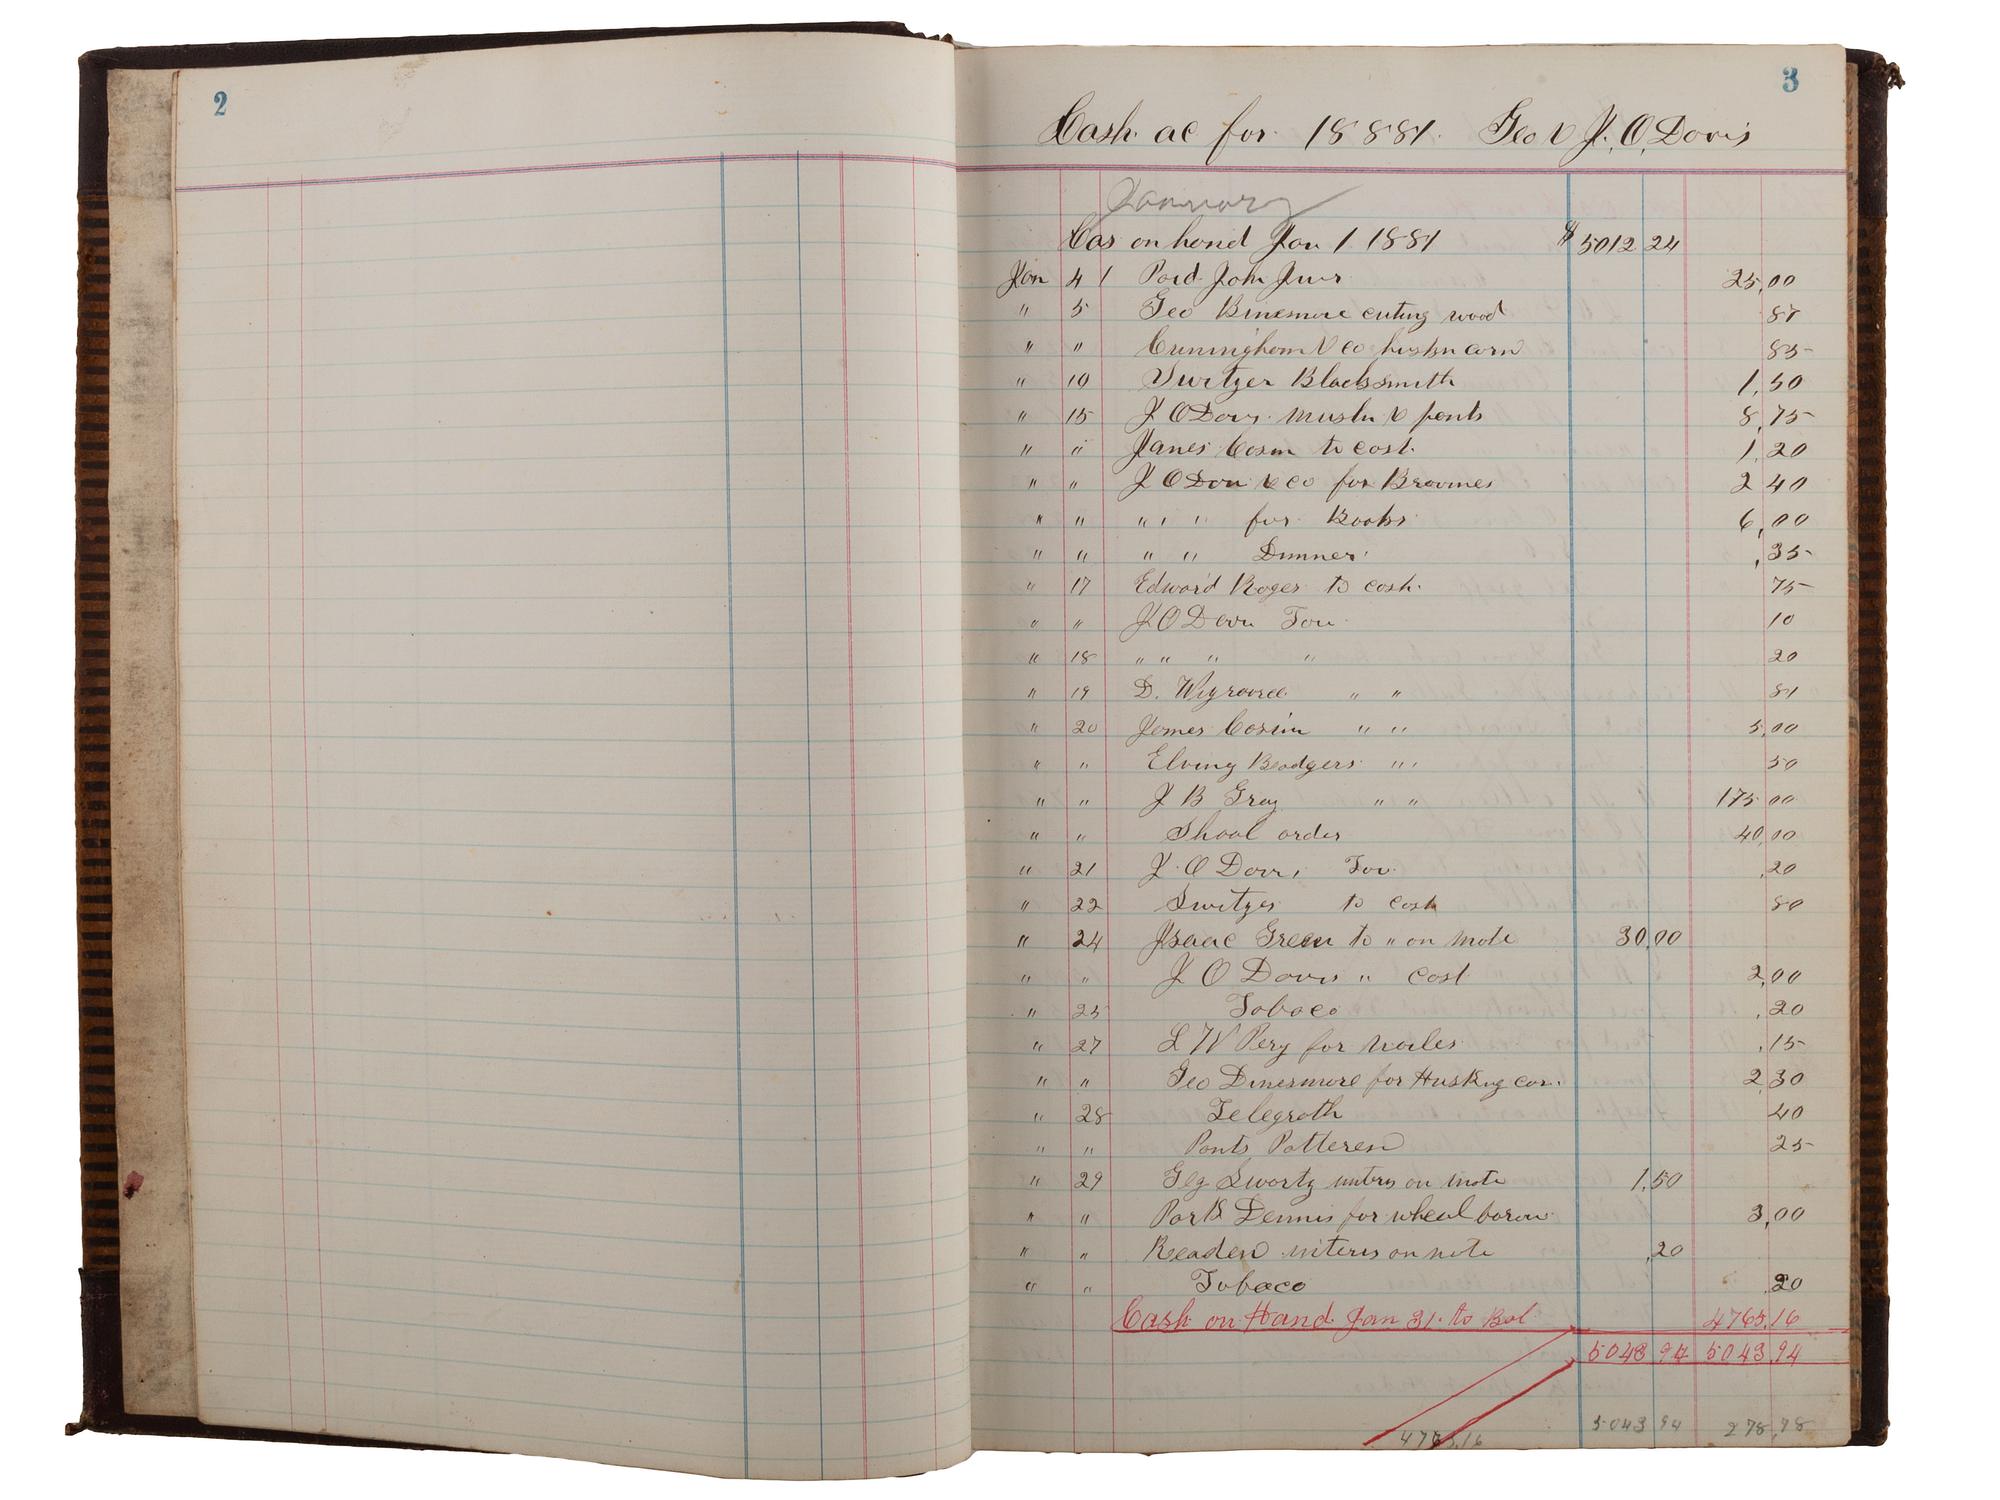 2
3
Cash ac for 18881. Geo & J. O. Davis
January
Cas on hand Jan 1 1881 $ 5012 24
Jan 4 1 Paid John 25,00
" 5 Geo Binsmore cuting wood 87
" " Cuningham & co huskn corn 85
" 10 Switzer Blacksmith 1,50
" 15 J O Davis muslin & pents 8,75
" " Janes Cosin to cash 1,20
" " J O Davi & co for Broomes 2 40
" " " " " for Books 6,00
" " " " Dinner ,35
" 17 Edward Roges to cash 75
" " J O Davis Tou 10
" 18 " " " " 20
" 19 D. " " 81
" 20 James Cosin " " 5,00
" " Elving Beadgers " " 50
" " J B Gray " " 175 00
" " Shool order 40,00
" 21 J. O Davis Tou ,20
" 22 Switzer to cash 80
" 24 Isaac Green to " on note 30,00
" " J O Davis " cash 2,00
" 25 Tobaco ,20
" 27 L W Pery for nailes ,15
" " Geo Dinesmore for Husking corn 2 30
" 28 Telegrath 40
" " Pants Patteren 25
" 29 Swartz interes on note 1,50
" " Park Dennis for wheal barow 3,00
" " Readen interes on note ,20
" " Tobaco ,20
Cash on Hand Jan 31. to Bal 4765,16
5043 94 5043,94
5043 94 278,78
4765,16